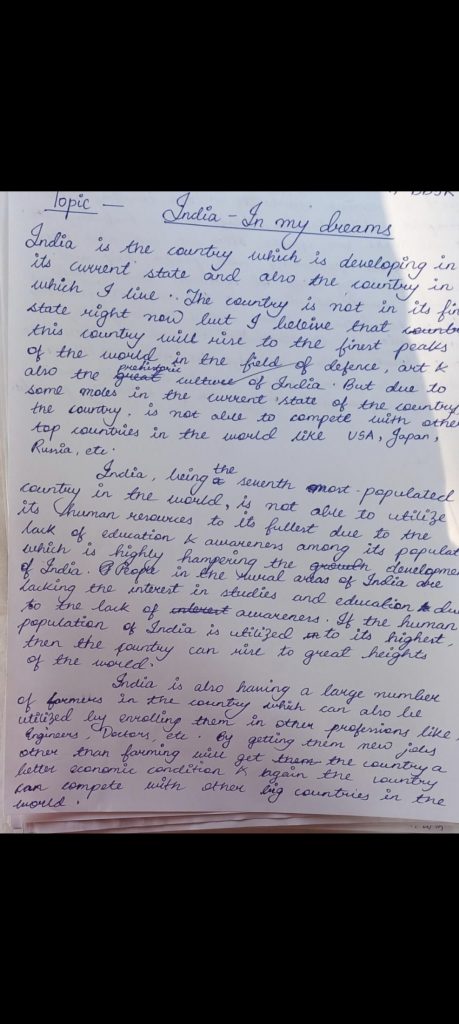 Topic — India - In my dreams
India is the country which is developing in
its current state and also the country in
which I live. The country is not in its fin
state right now but I beleive that
this country will rise to the finest peaks
of the world in the field of defence, art &
also the prehistoric culture of India. But due to
some moles in the current state of the country,
the country, is not able to compete with othe
top countries in the world like USA, Japan,
Russia, etc.
India, being the seventh most populated
country in the world, is not able to utilize
its human resources to its fullest due to the
lack of education & awareness among its populat
which is highly hampering the developme
of India. People in the rural areas of India are
lacking the interest in studies and education du
to the lack of awareness. If the human
population of India is utilized to its highest,
then the country can rise to great heights
of the world.
India is also having a large number
of farmers in the country which can also be
utilized by enrolling them in other professions like
Engineers, Doctors, etc. By getting them new jobs
other than farming will get the country a
better economic condition & again the country
can compete with other big countries in the
world.